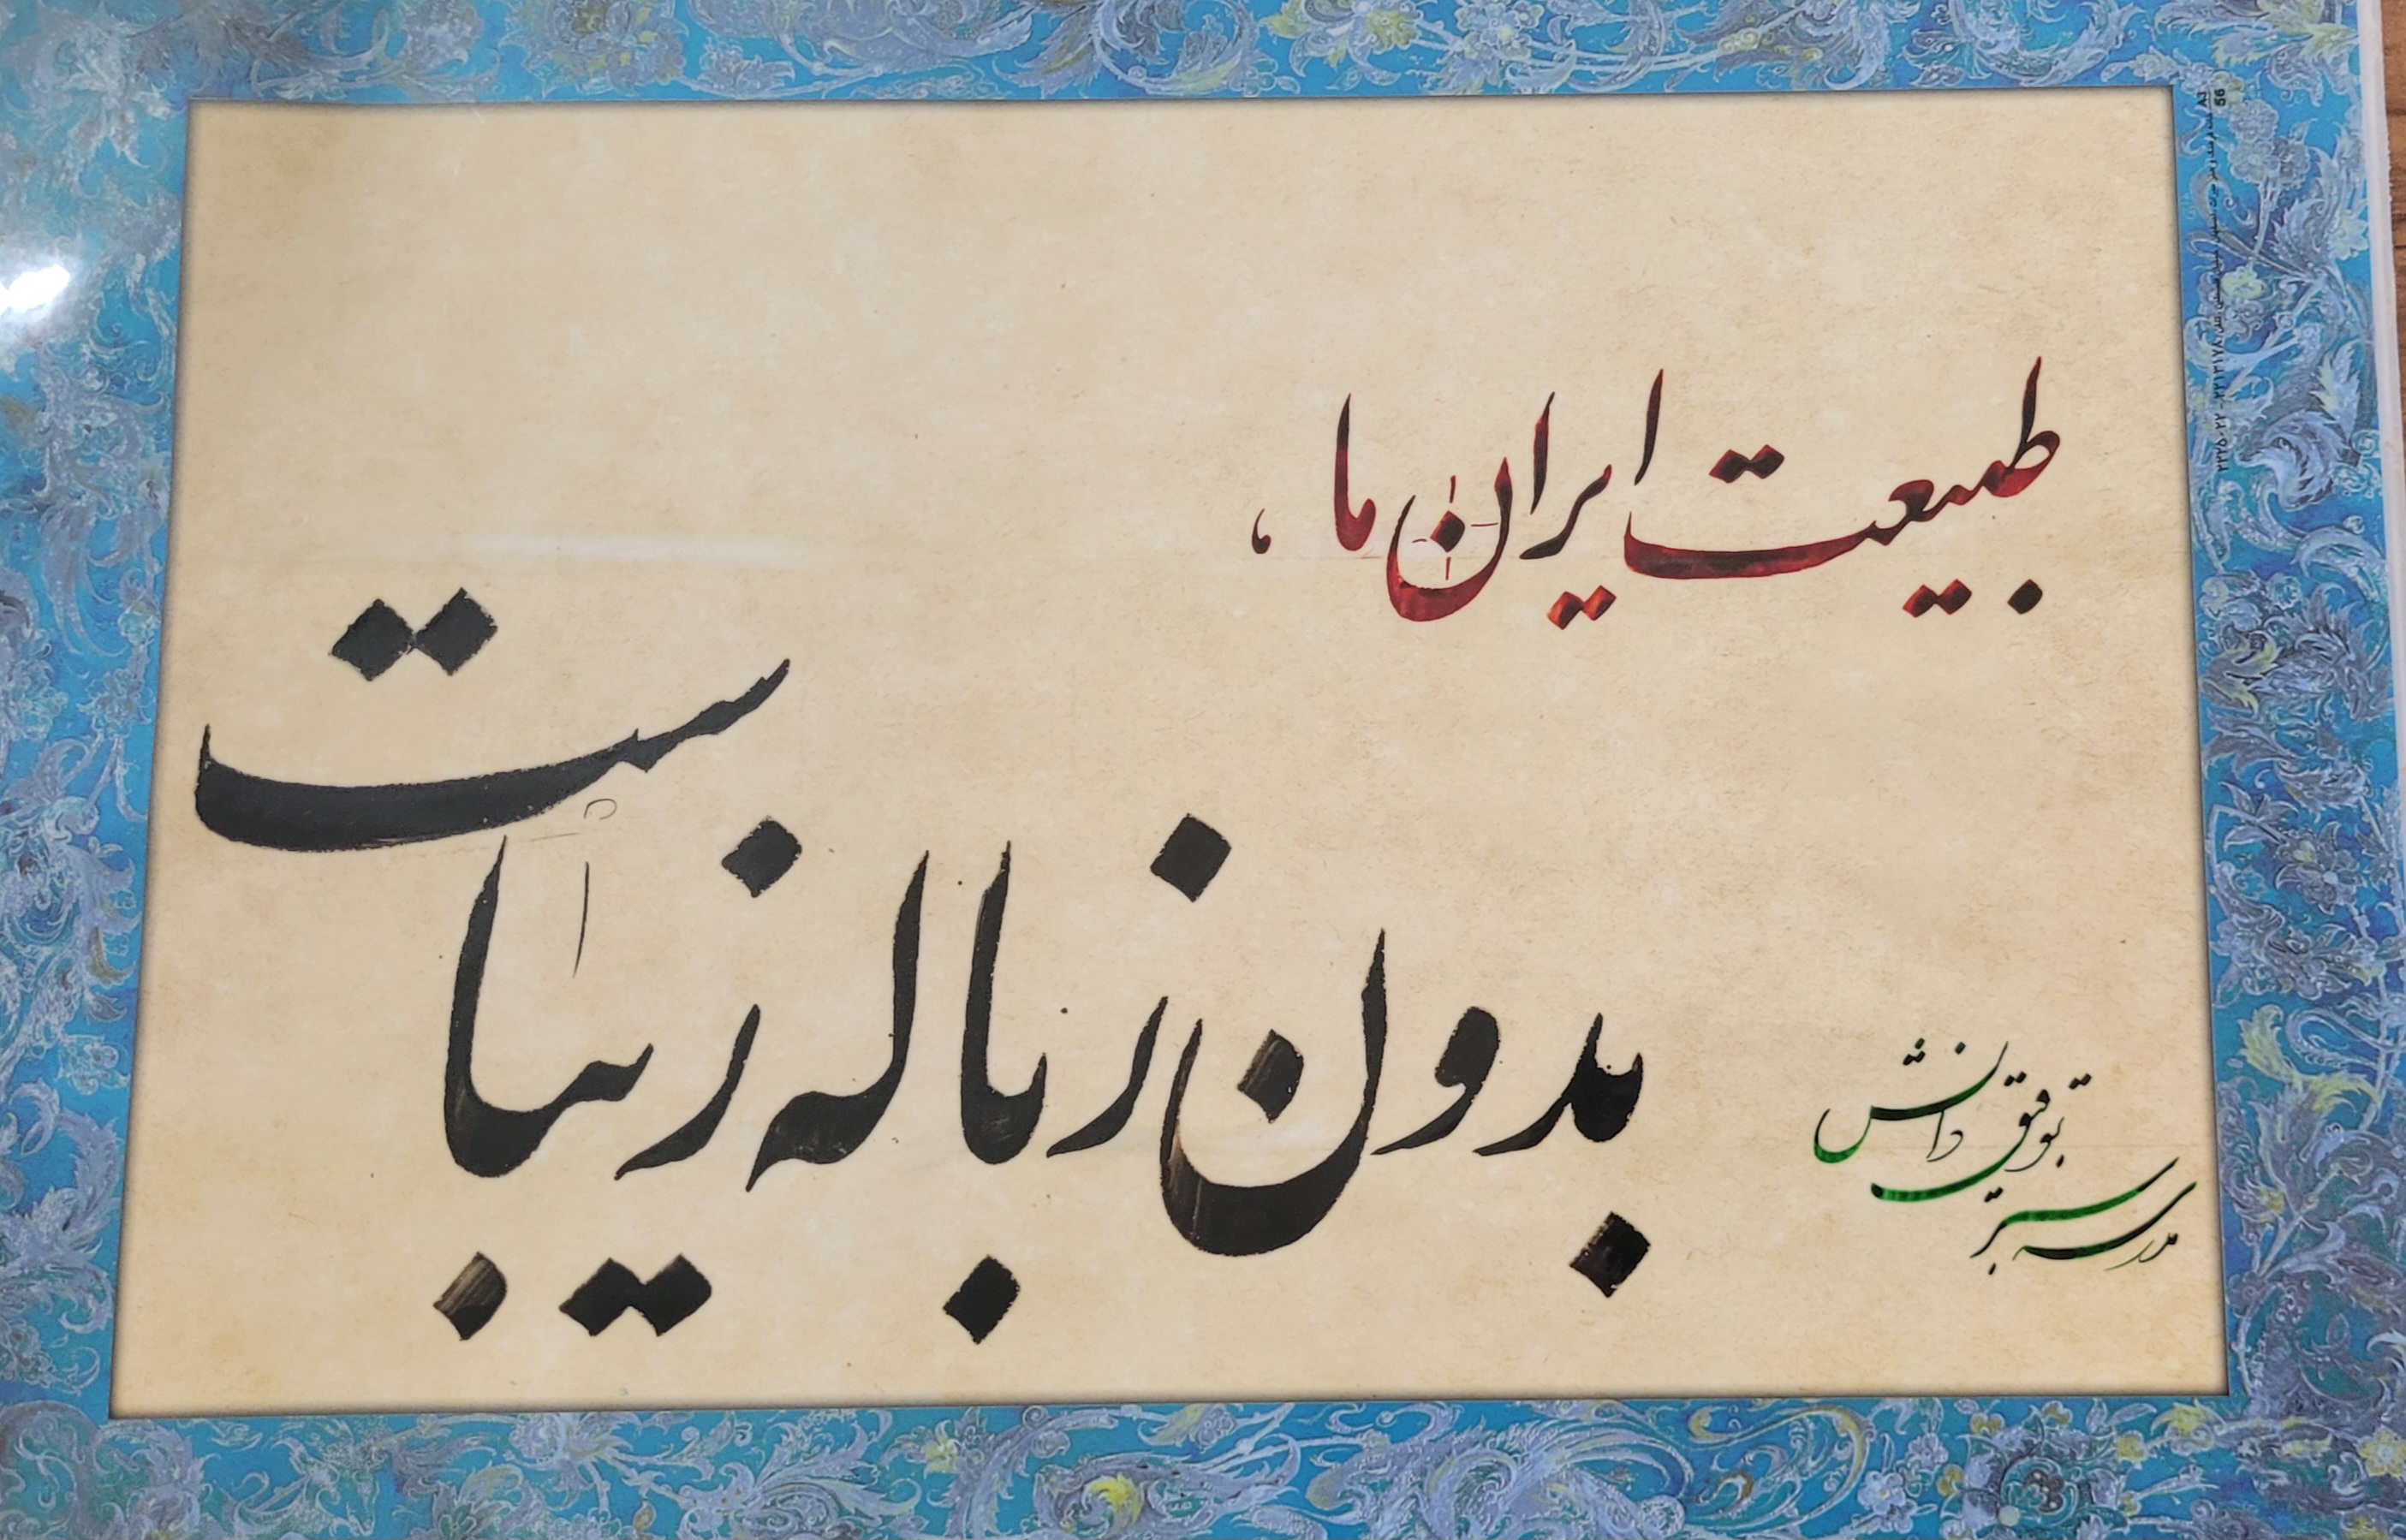 طبیعت ایران ما،
بدون زباله زیباست
مدرسه سبز
توفیق دانش
A3
56